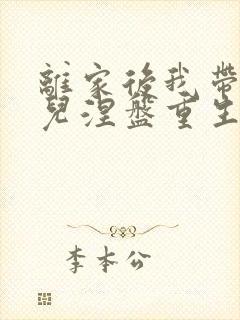 離家後我帶
兒涅盤重生
李本公